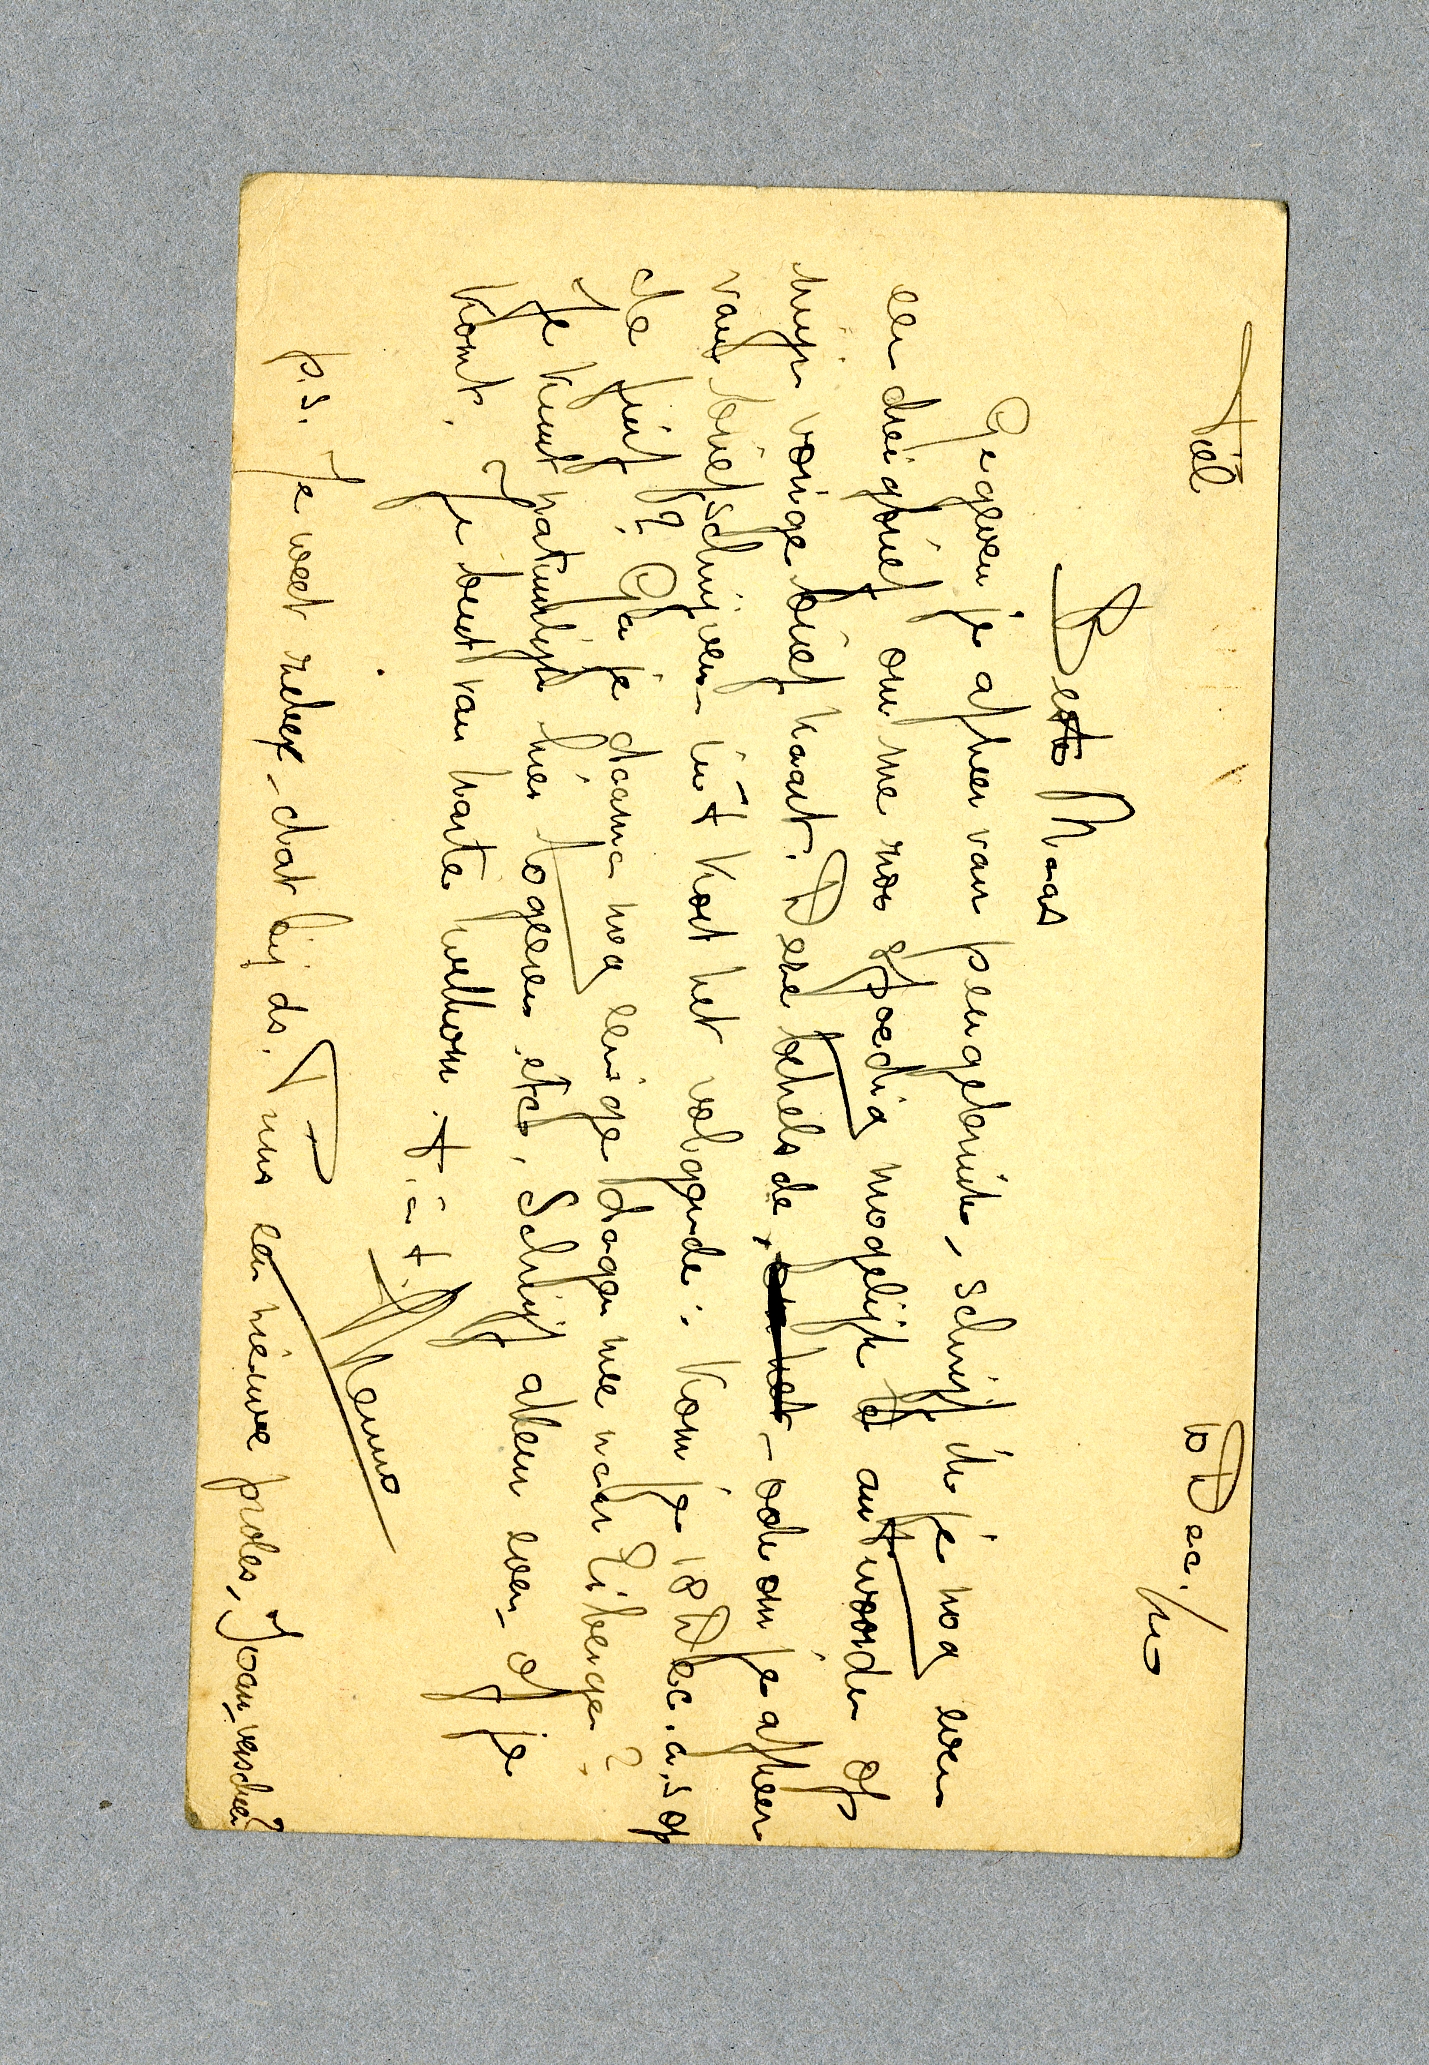 Tiel 10 Dec. /
Beste Maas
Gegeven je afkeer van pengebruik, schrijf ik je nog even
een dreigbrief om me zoo spoedig mogelijk te antwoorden op
mijn vorige briefkaart. Deze behelsde, – ook om je afkeer
van briefschrijven – in 't kort het volgende: Kom je 18 Dec. a.s op
de fuif? Ga je daarna nog eenige dagen mee naar Eibergen?
Je kunt natuurlijk hier logeeren etc. Schrijf alleen even of je
komt. Je bent van harte welkom. t. à. t. Menno
p.s. Je weet zeker – dat bij ds. een nieuwe proles, Joan, verscheen?